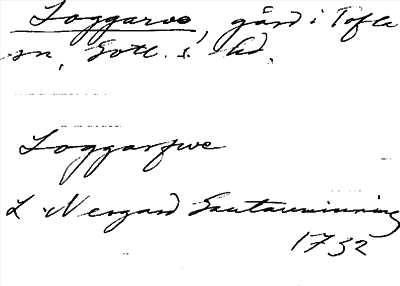 Loggarve, gård i Tofta
sn, Gotl. s. hd.
Loggarfwe
L Nergård Skattmanning
1732